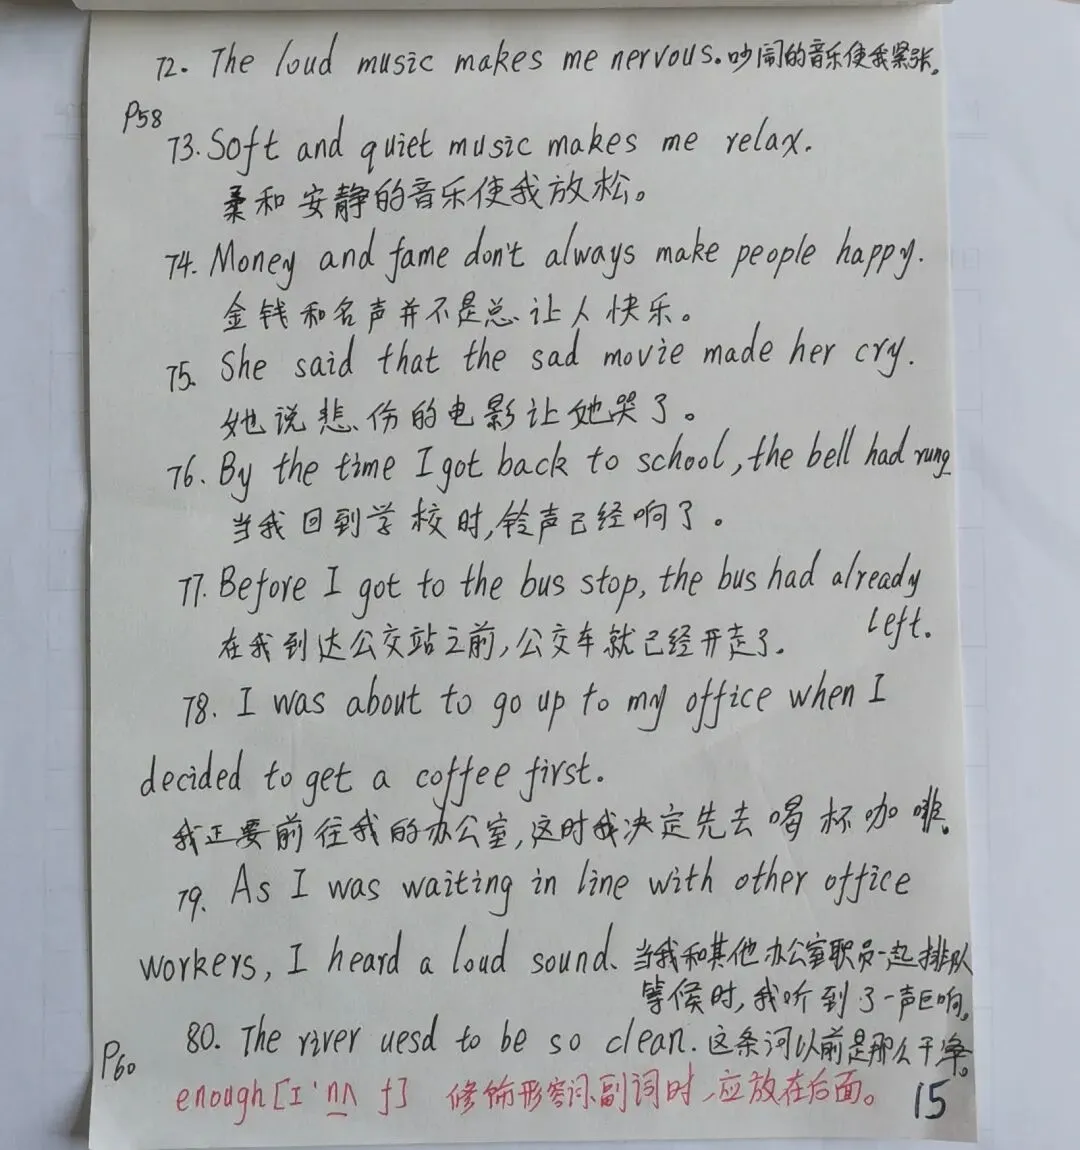 72. The loud music makes me nervous. 吵闹的音乐使我紧张。
P58
73. Soft and quiet music makes me relax.
柔和安静的音乐使我放松。
74. Money and fame don't always make people happy.
金钱和名声并不是总让人快乐。
75. She said that the sad movie made her cry.
她说悲伤的电影让她哭了。
76. By the time I got back to school, the bell had rung
当我回到学校时,铃声已经响了。
77. Before I got to the bus stop, the bus had already
left.
在我到达公交站之前,公交车就已经开走了.
78. I was about to go up to my office when I
decided to get a coffee first.
我正要前往我的办公室,这时我决定先去喝杯咖啡.
79. As I was waiting in line with other office
workers, I heard a loud sound. 当我和其他办公室职员一起排队
等候时,我听到了一声巨响。
80. The river uesd to be so clean. 这条河以前是那么干净。
P60
enough [I'nʌf] 修饰形容词、副词时,应放在后面。
15